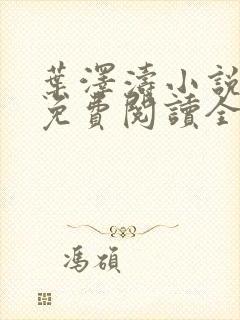 葉澤濤小說
免費閱讀全
馮碩